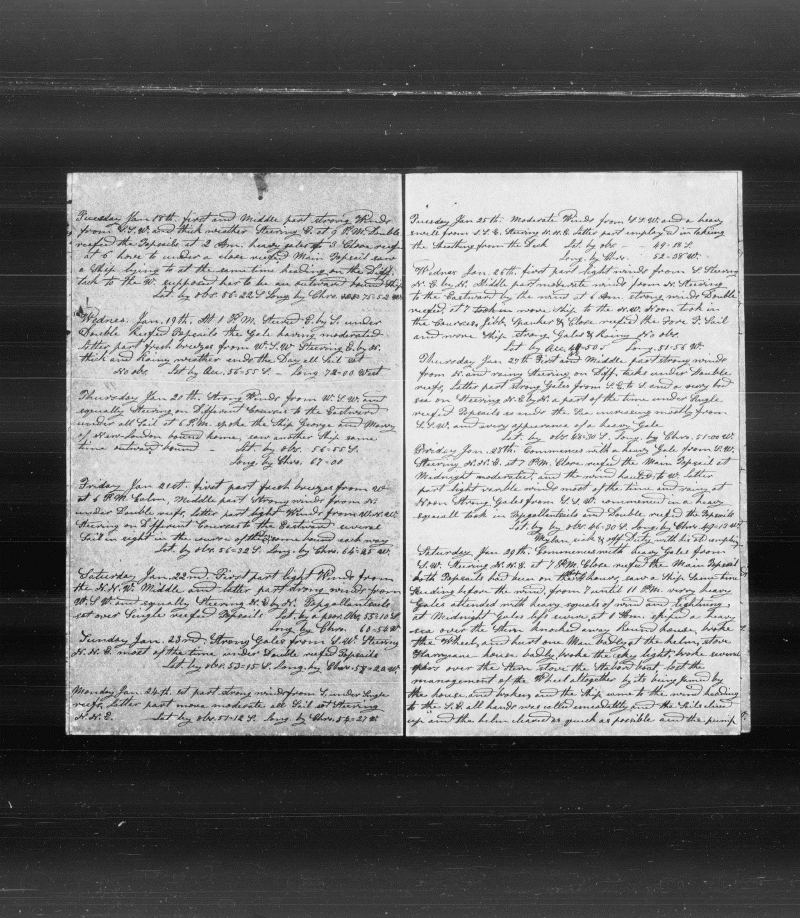 Tuesday Jan. 18th. first and Middle part strong Winds
from S.S.W. and thick weather Steering E. at 9 P.M. Double
reefed the Topsails at 2 Am. heavy gales at 3 Close reef
at 5 hove to under a close reefed Main Topsail saw
a Ship lying to at the same time heading on the Diff.
tack to the W. supposed her to be an outward bound Ship
Lat by obs. 56-22 S Long by Chro. 75-52 W
Wednes. Jan. 19th. At 1 P.M. Steered E. by S. under
Double Reefed Topsails the Gale having moderated
latter part fresh breezes from W.S.W Steering E. by N.
thick and Rainy weather ends the Day all Sail set
No obs. Lat by Acc. 56-55 S. Long 72-00 West
Thursday Jan 20th Strong Winds from W.S.W. and
squally Steering on Different Courses to the Eastward
under all Sail at 6 P.M. spoke the Ship George and Mary
of New-London bound home, saw another Ship same
time outward bound - Lat. by obs. 56-55 S.
Long. by Chro. 67-00
Friday Jan 21st. first part fresh breezes from
at 6 P.M. Calm, Middle part Strong winds from N.
under Double reefs, latter part light Winds from W.N.W.
Steering on Different Courses to the Eastward several
Sail in sight in the course of the day some bound each way
Lat. by obs. 56-32 S. Long. by Chro. 64-25 W.
Saturday Jan. 22nd First part light Winds from
the N.N.W. Middle and latter part strong winds from
W.S.W. and squally Steering N.E. by N. Topgallantsails
set over Single reefed Topsails Lat. by a poor Obs. 55-10 S.
Long by Chro. 60-54 W
Sunday Jan. 23rd. Strong Gales from S.W. Steering
N.N.E. most of the time under Double reefed Topsails
Lat. by obs. 53-15 S. Long. by Chro. 58-22 W.
Monday Jan. 24th. 1st part strong winds from S. under Single
reefs, latter part more moderate all Sail set Steering
N.N.E. Lat by obs. 51-12 S. Long. by Chro. 54-21 W
Tuesday Jan 25th. Moderate Winds from S.S.W. and a heavy
swell from S.S.E. Steering N.N.E. latter part employed in taking
the Sheathing from the Deck Lat. by obs - - 49-18 S.
Long. by Chro. 52-38 W.
Wednes Jan. 26th. first part light winds from S. Steering
N.E. by N. Middle part moderate winds from N. Steering
to the Eastward by the wind at 6 Am. strong winds Double
reefed, at 7 took in wore Ship to the N.W. Noon took in
the Courses, Jibb, Spanker & Close reefed the Fore T. Sail
and wore Ship strong Gales & Rainy No obs.
Lat by Acc. 48-50 S. Long. 51-56 W.
Thursday Jan 27th First and Middle part strong winds
from N. and rainy Steering on Diff. tacks under Double
reefs, Latter part strong Gales from S. & E. S. and a very bad
sea on Steering N.E. by N. a part of the time under Single
reefed Topsails so ends the Sea increasing mostly from
S.S.W. and every appearance of a heavy Gale.
Lat. by obs. 48-30 S. Long. by Chro. 51-00 W.
Friday Jan. 28th. Commences with a heavy Gale from S.W.
Steering N.N.E. at 7 P.M. Close reefed the Main Topsail at
Midnight moderated, and the wind to W. latter
part light varible winds most of the time and rainy at
Noon Strong Gales from S.S.W. commenced in a heavy
squall took in Topgallantsails and Double reefed the Topsails
Lat. by obs. 46-20 S. Long. by Chro. 49-13 W.
Mylan, sick & off Duty with his
Saturday Jan 29th. Commences with heavy Gales from
S.W. Steering N.N.E. at 7 P.M. Close reefed the Main Topsail
both Topsails had been on the 4 hours, saw a Ship same time
Scuding before the wind, from 7 until 11 P.M. very heavy
Gales attended with heavy squals of wind and lightning,
at Mednight Gales left severe at 1 Am. shiped a heavy
sea over the Stern knocked away wheel house, broke
the Wheel, and hurt one Man badly at the helm, stove
Hurrycane house badly, broke the sky light, broke several
spars over the Stern stove the Starbord boat, lost the
management of the Wheel altogether by its being jamed by
the house and broken and the Ship came to the wind heading
to the S.E. all hands was called emeadatly, and the Sails clewed
up and the helm cleared as quick as possible and the pump